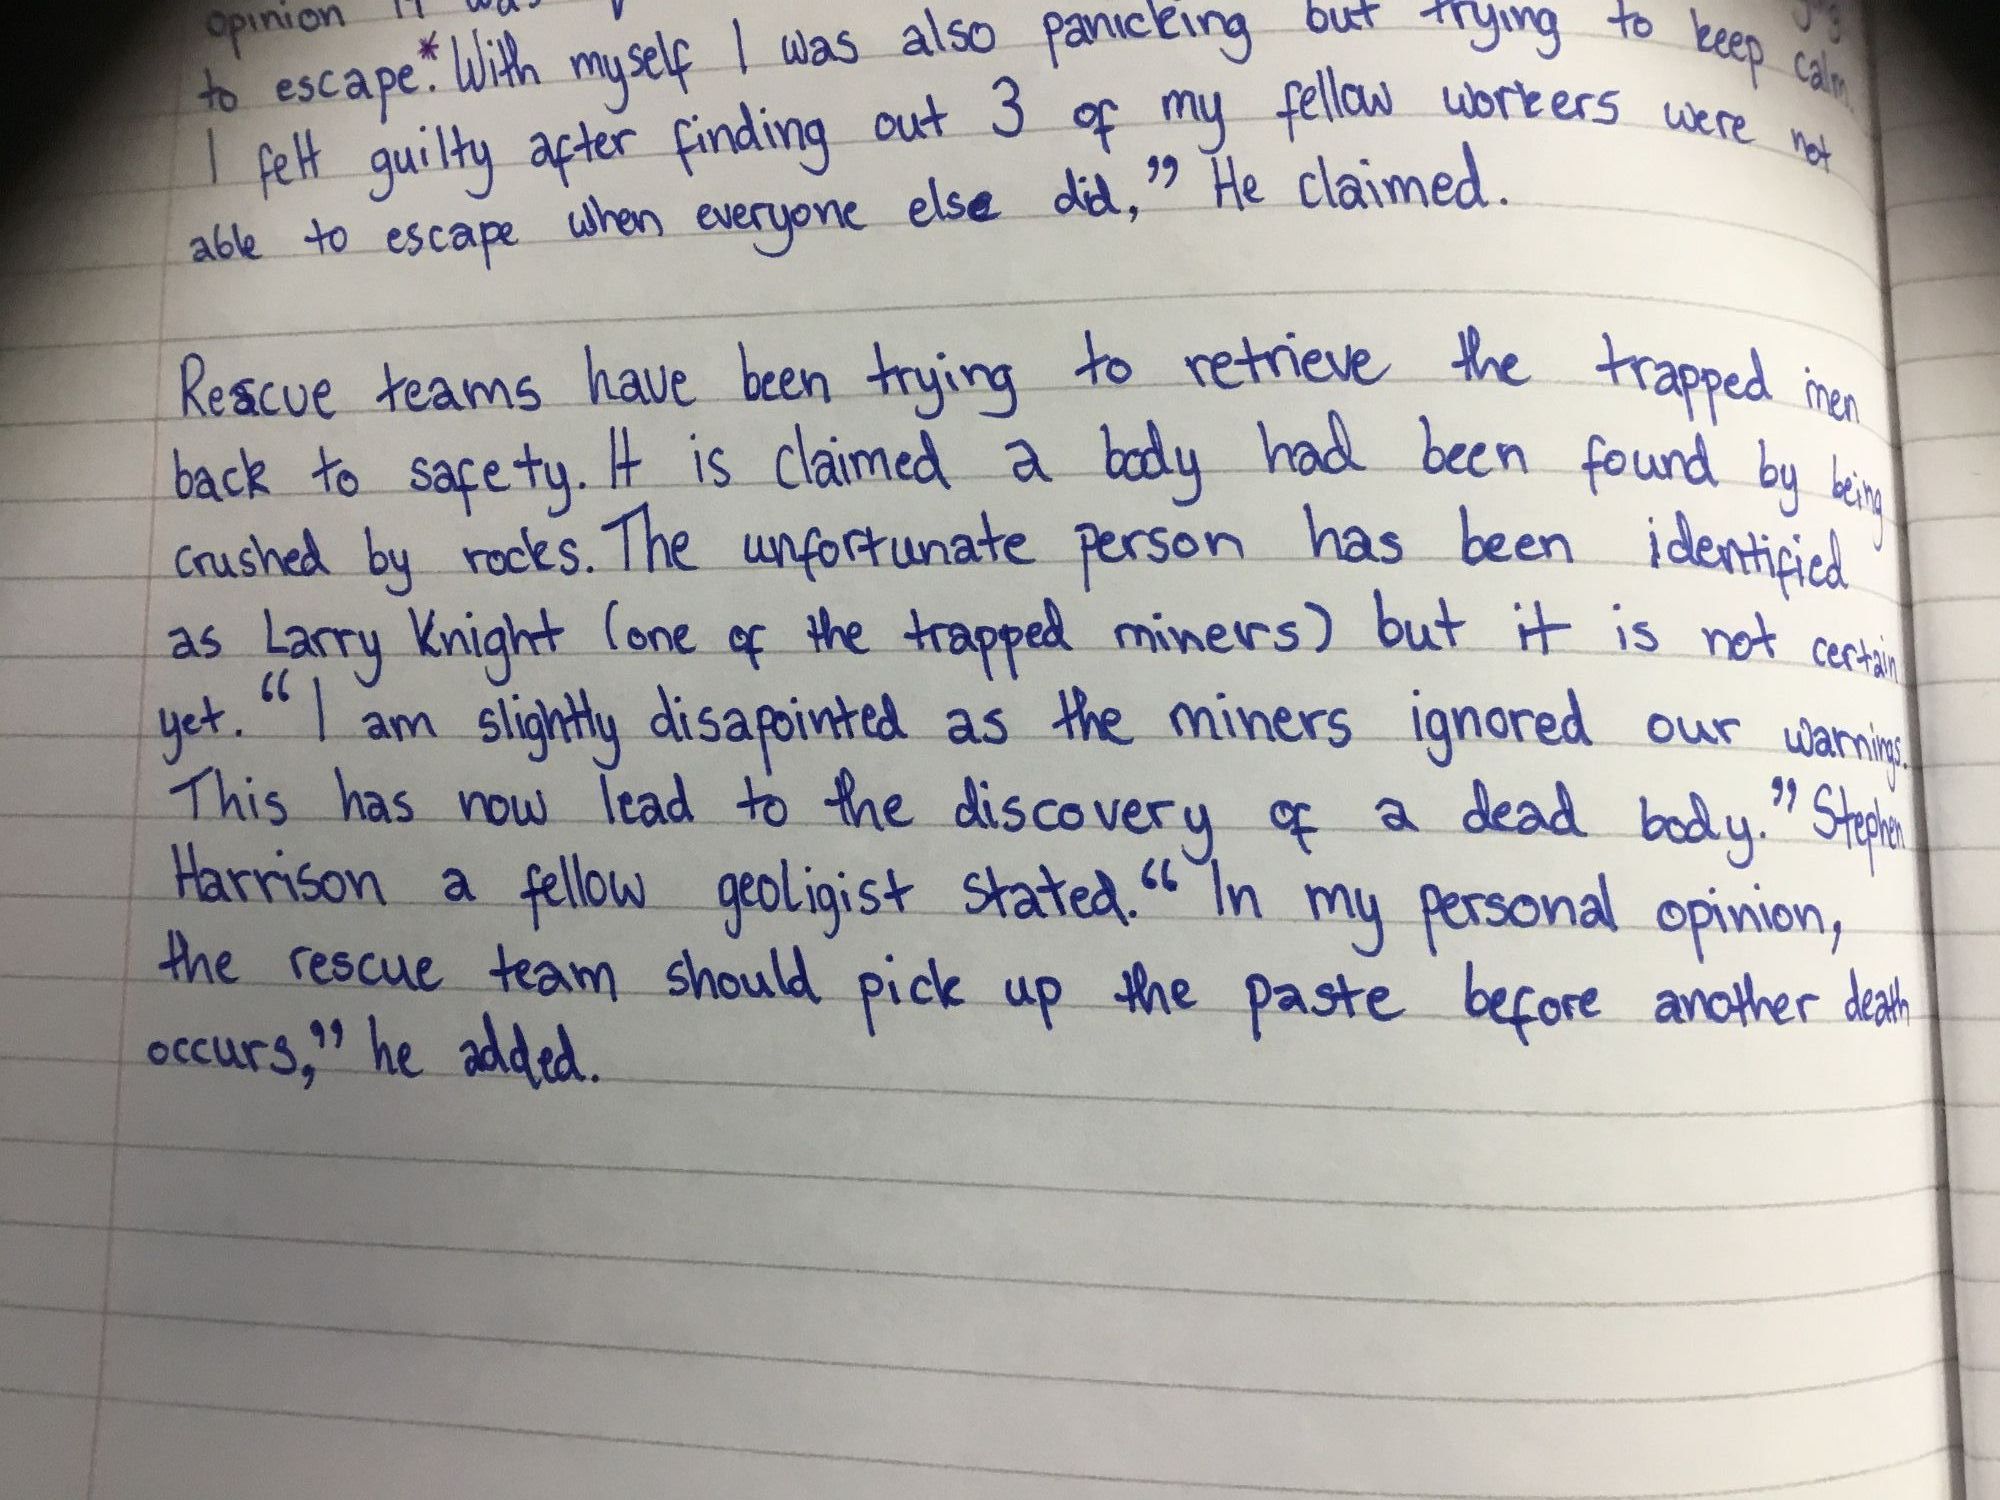 opinion it was
to escape.* With myself I was also panicking but trying to keep calm.
I felt guilty after finding out 3 of my fellow workers were not
able to escape when everyone else did,” He claimed.
Rescue teams have been trying to retrieve the trapped men
back to safety. It is claimed a body had been found by being
crushed by rocks. The unfortunate person has been identified
as Larry Knight (one of the trapped miners) but it is not certain
yet. “I am slightly disapointed as the miners ignored our warnings.
This has now lead to the discovery of a dead body.” Stephen
Harrison a fellow geoligist stated. “In my personal opinion,
the rescue team should pick up the paste before another death
occurs,” he added.